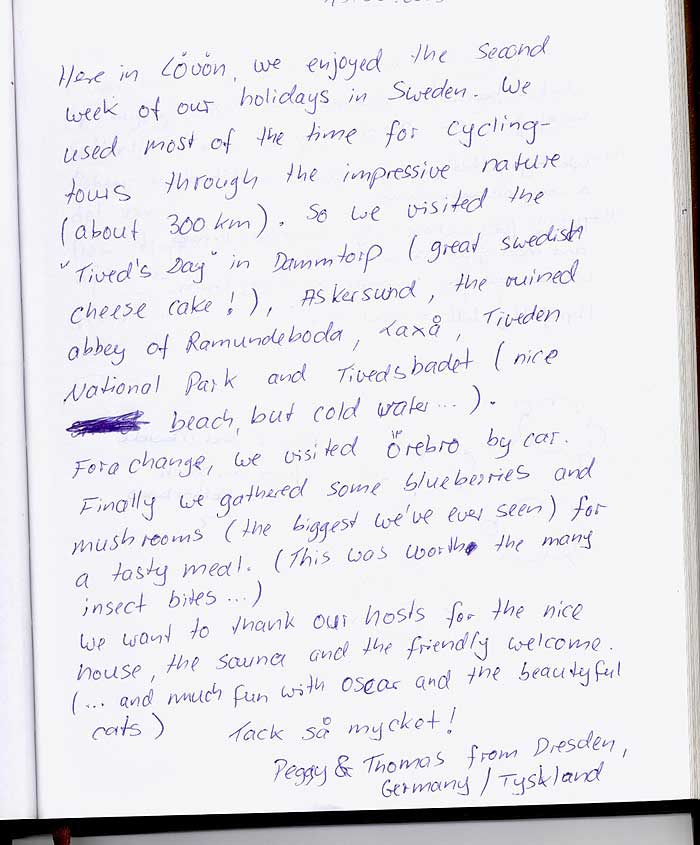 Here in Lövön, we enjoyed the second
week of our holidays in Sweden. We
used most of the time for cycling-
tours through the impressive nature
(about 300 km). So we visited the
"Tived's Day" in Dammtorp (great swedish
cheese cake!), Askersund, the ruined
abbey of Ramundeboda, Laxå, Tiveden
National Park and Tivedsbadet (nice
beach, but cold water...).
For a change, we visited Örebro by car.
Finally we gathered some blueberries and
mushrooms (the biggest we've ever seen) for
a tasty meal. (This was worth the many
insect bites...)
We want to thank our hosts for the nice
house, the sauna and the friendly welcome.
(... and much fun with Oscar and the beautyful
cats) Tack så mycket!
Peggy & Thomas from Dresden,
Germany / Tyskland